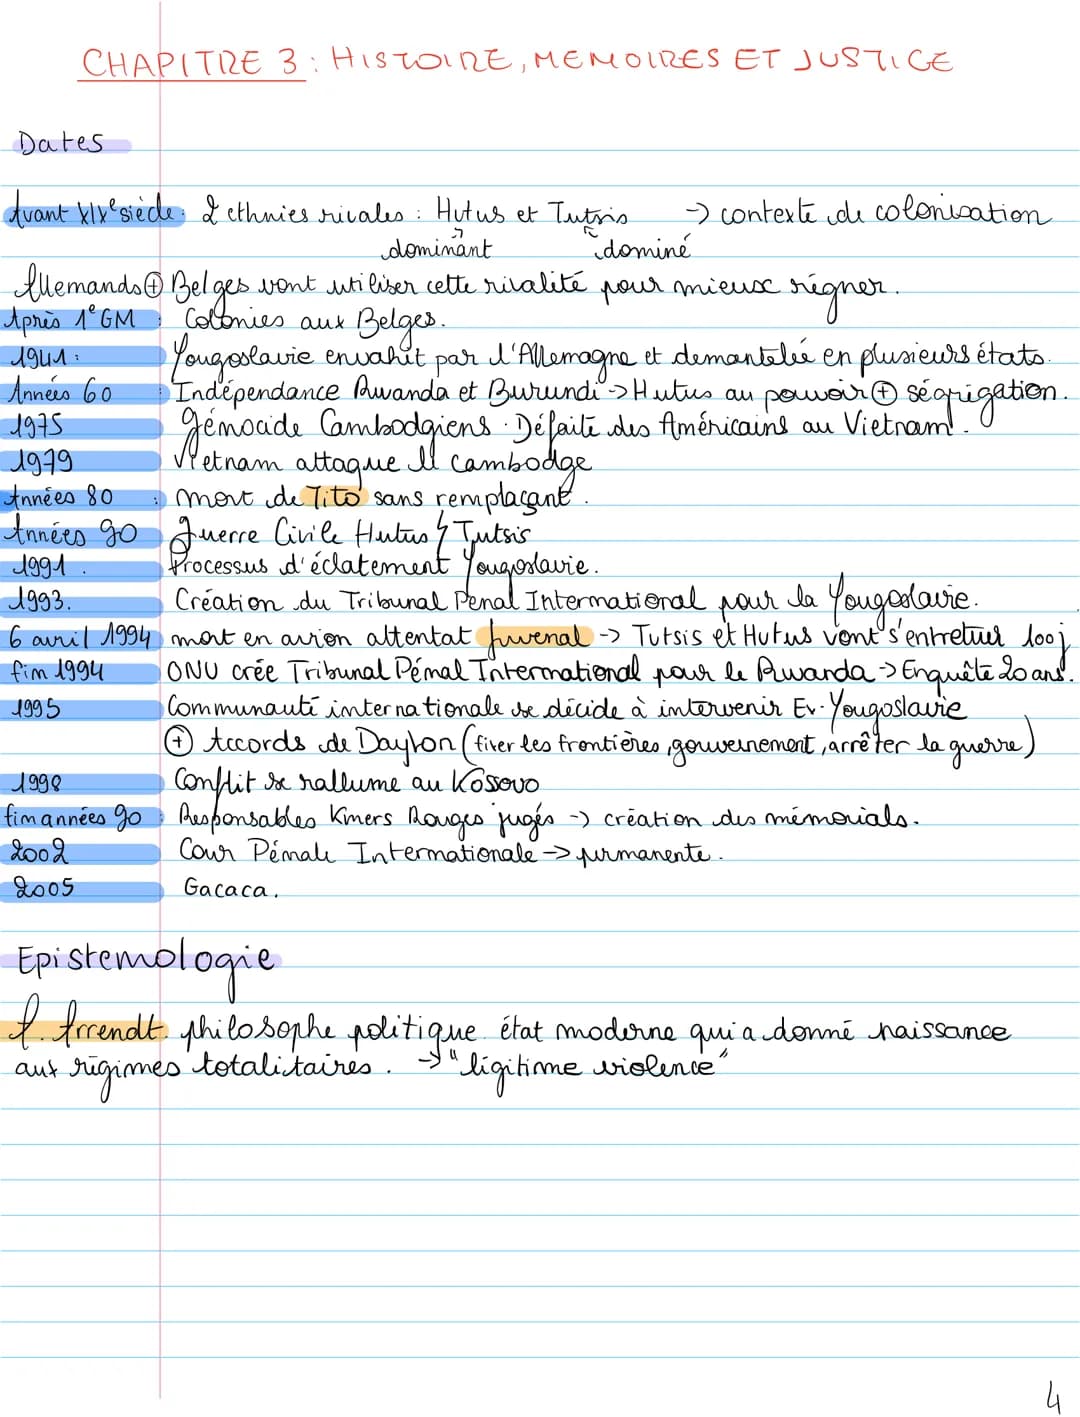 CHAPITRE 3 : HISTOIRE, MEMOIRES ET JUSTICE
Dates
Avant XIXe siècle : 2 ethnies rivales : Hutus et Tutsis -> contexte de colonisation
dominant dominé
Allemands ⊕ Belges vont utiliser cette rivalité pour mieux régner.
Après 1° GM : Colonies aux Belges.
1941 : Yougoslavie envahit par l'Allemagne et demantelée en plusieurs états.
Années 60 : Indépendance Rwanda et Burundi -> Hutus au pouvoir ⊕ ségrigation.
1975 génocide Cambodgiens. Défaite des Américains au Vietnam.
1979 Vietnam attaque le cambodge
Années 80 : mort de Tito sans remplaçant.
Années 90 guerre Civile Hutus ↯ Tutsis
1991. Processus d'éclatement Yougoslavie.
1993. Création du Tribunal Pénal International pour la Yougoslavie.
6 avril 1994 mort en avion attentat Juvenal -> Tutsis et Hutus vont s'entretuer 100j
fin 1994 ONU crée Tribunal Pénal International pour le Rwanda -> Enquête 20 ans.
1995 Communauté internationale se décide à intervenir Ex-Yougoslavie
⊕ Accords de Dayton (fixer les frontières, gouvernement, arrêter la guerre)
1998 Conflit se rallume au Kosovo
fin années 90 : Responsables Kmers Rouges jugés -> création des mémorials.
2002 Cour Pénale Internationale -> permanente.
2005 Gacaca.
Epistemologie
A. Arrendt philosophe politique. état moderne qui a donné naissance
aux régimes totalitaires. -> "légitime violence"
4